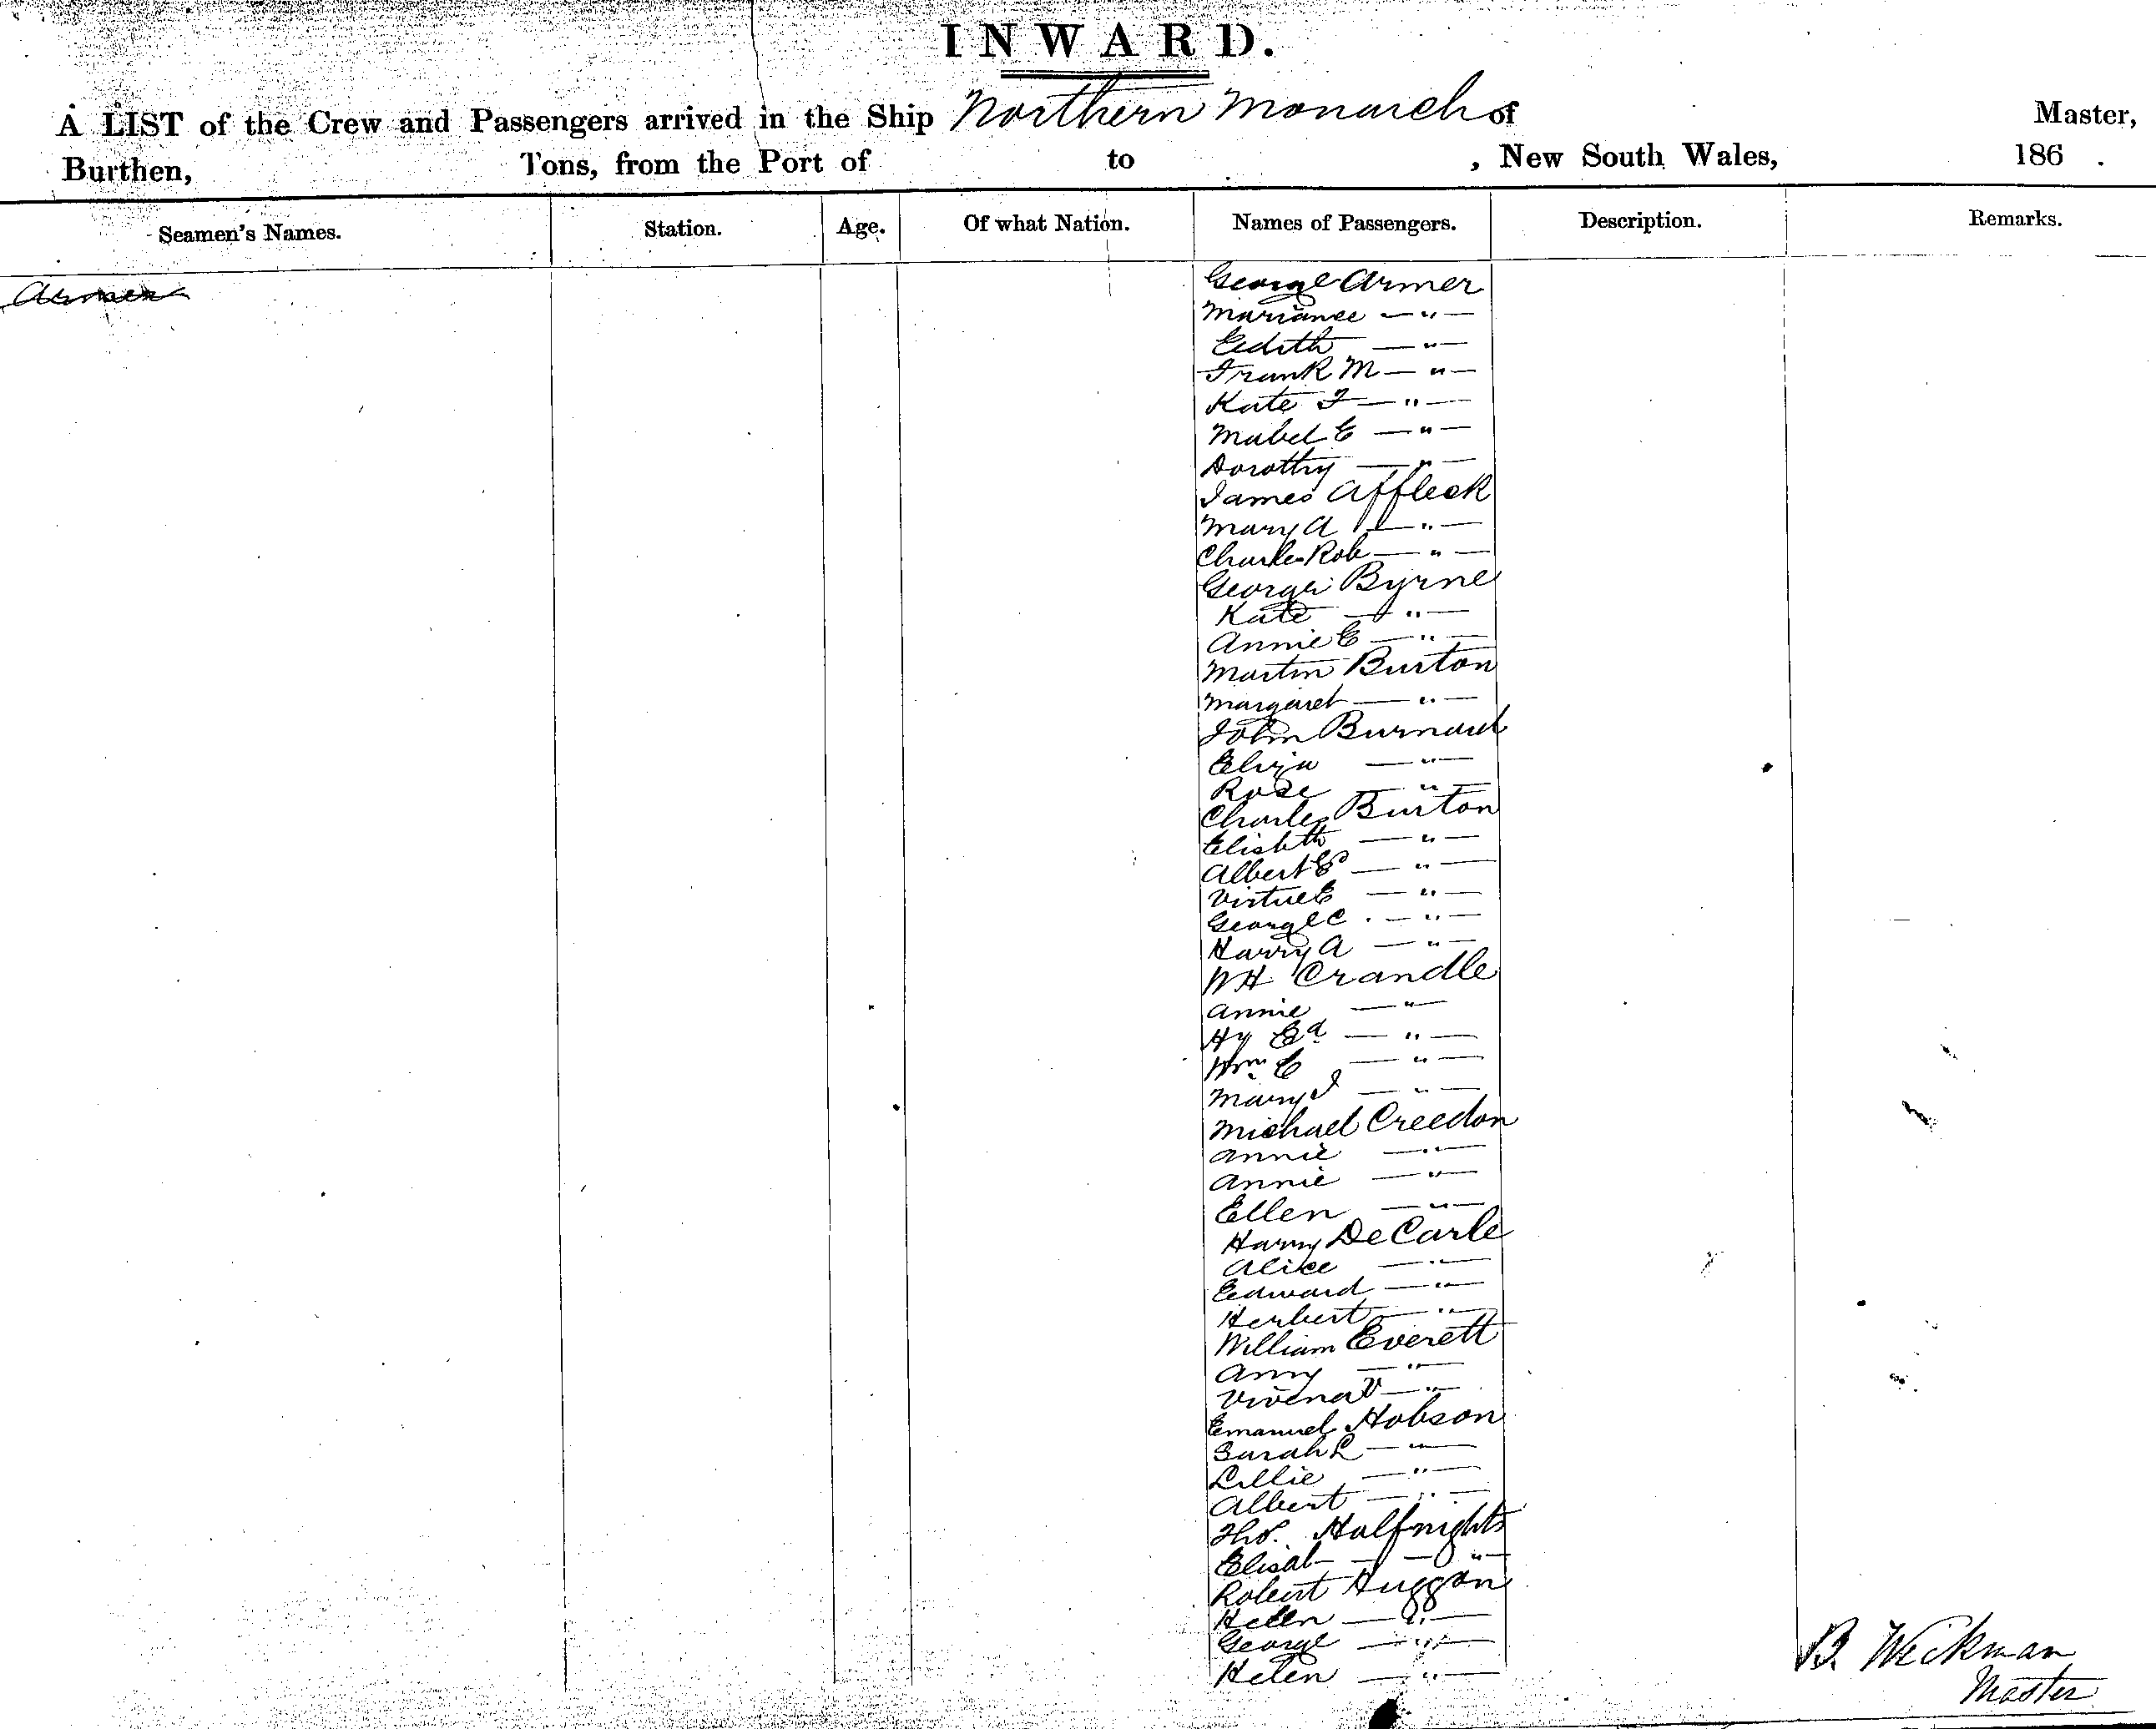 INWARD.
A LIST of the Crew and Passengers arrived in the Ship Northern Monarch of Master,
Burthen, Tons, from the Port of to , New South Wales, 186 .
Seamen's Names. Station. Age. Of what Nation. Names of Passengers. Description. Remarks.
Armer
George Armer
Marianee — " —
Edith — " —
Frank M — " —
Kate F — " —
Mabel E — " —
Dorothy — " —
James Affleck
Mary A — " —
Charles Rob — " —
George Byrne
Kate — " —
Annie E — " —
Martin Burton
Margaret — " —
John Burnard
Eliza — " —
Rose — " —
Charles Burton
Elisbth — " —
Albert E — " —
Virtue E — " —
George C — " —
Harry A — " —
WH Crandle
Annie — " —
Hy Ed — " —
Wm E — " —
Mary J — " —
Michael Creedon
Annie — " —
Annie — " —
Ellen — " —
Harry De Carle
Alice — " —
Edward — " —
Herbert — " —
William Everett
Amy — " —
Vivena V — " —
Emanuel Hobson
Sarah L — " —
Lillie — " —
Albert — " —
Tho. Halfnights
Elisab — " —
Robert Huggon
Helen — " —
George — " —
Helen — " —
B. Weikman
Master